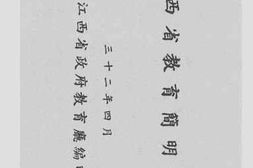 西省教育簡明
三十二年四月
江西省政府教育廳編